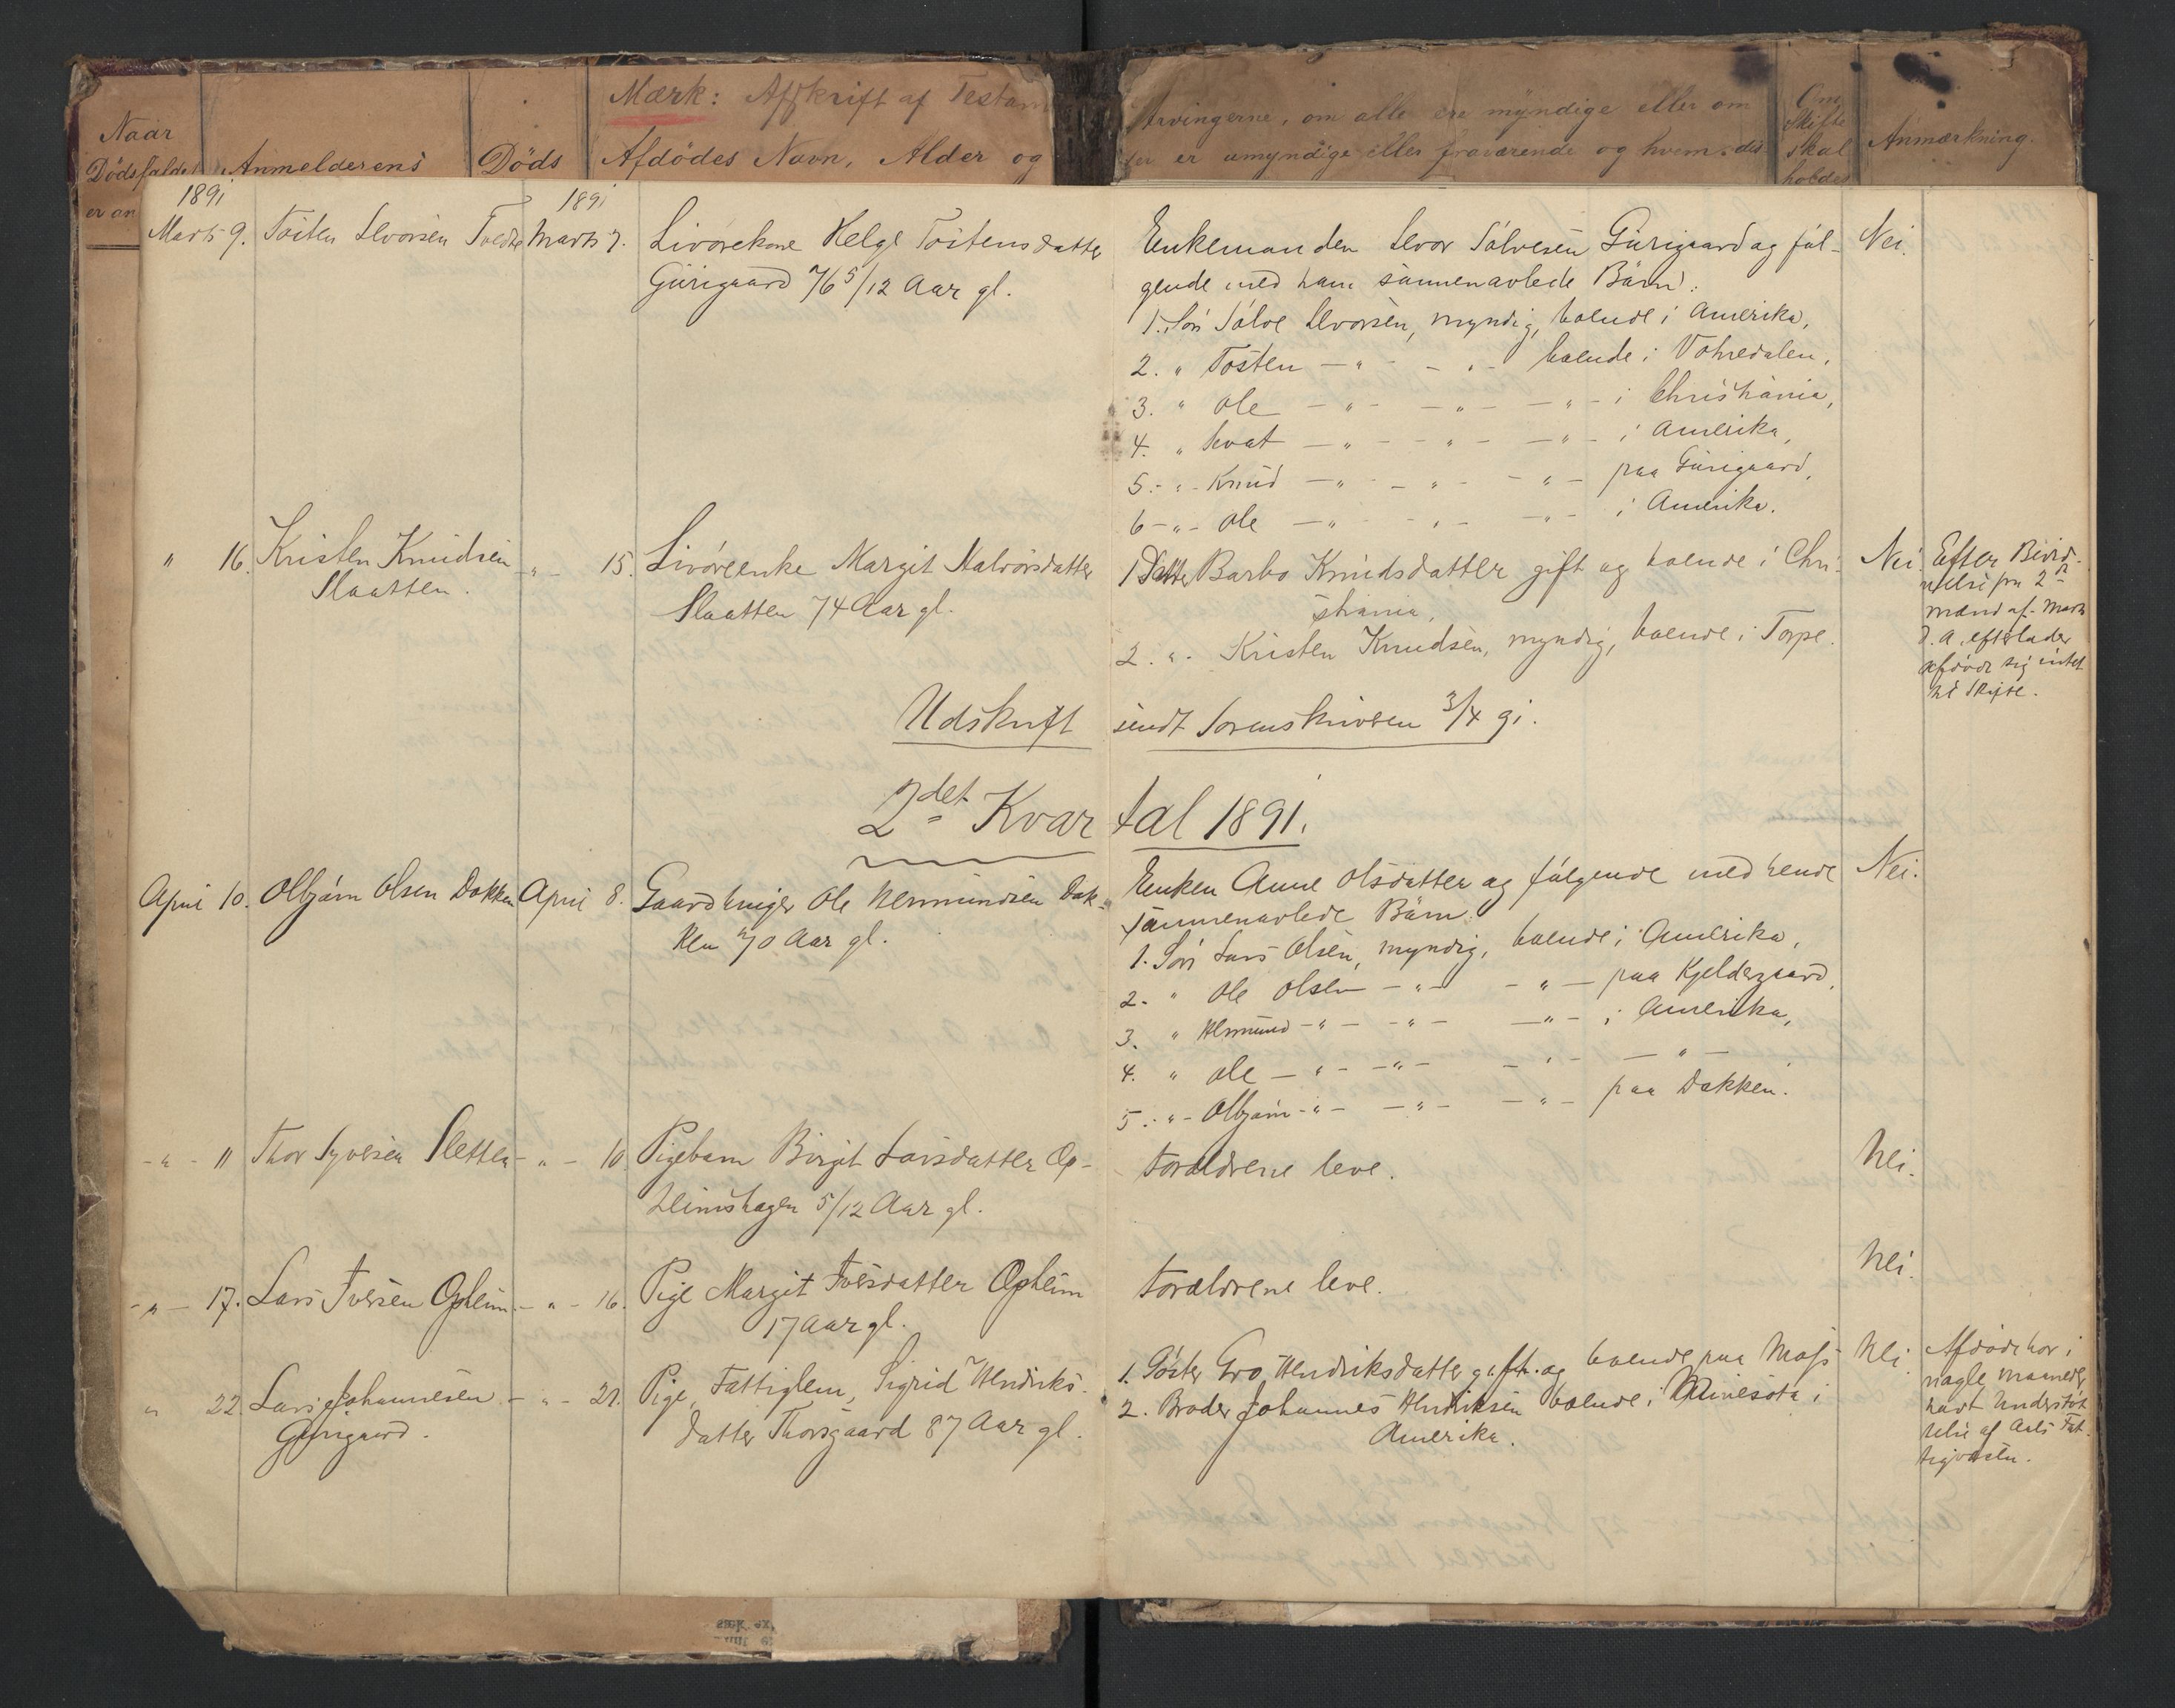 Mærk: Afskrift af Testam
Naar
Dödsfaldet Anmelderens Döds Afdödes Navn, Alder og
er an
Arvingerne, om alle ere myndige eller om
er umyndige eller fraværende og hvem
Om
Skifte
skal
holdes
Anmærkning.
1891 1891
Marts 9. Tosten Levorsen Marts 7. Livørekone Helge Tostensdatter
Gurigaard 76 5/12 Aar gl.
Enkemanden Levor Sølvesen Gurigaard og föl-
gende med ham sammenavlede Børn:
1. Søn Sølve Levorsen, myndig, boende i Amerika,
2. " Tosten — " — " — boende i Votnedalen,
3. " Ole — " — — " — — " — i Christiania,
4. " — " — — " — — " — i Amerika,
5. - " - Knud — " — — " — — " — paa Gurigaard,
6 - " - Ole — " — — " — — " — i Amerika.
Nei.
" 16. Kristen Knudsen — " — 15. Livøreenke Margit Halvorsdatter
Slaatten. Slaatten 74 Aar gl.
1. Datter Barbo Knudsdatter gift og boende i Chri-
stiania,
2. " . Kristen Knudsen, myndig, boende i Torpe.
Nei.
Efter
fra 2de
mænd af Marts
d. A. efterlader
afdøde sig intet
til Skifte.
Udskrift sendt Sorenskriveren 3/4 91.
2det Kvartal 1891.
April 10. Olbjørn Olsen Dokken April 8. Gaardbruger Ole Hermundsen Dok-
ken 70 Aar gl.
Enken Anne Olsdatter og følgende med hende
sammenavlede Børn:
1. Søn Lars Olsen, myndig, boende i Amerika,
2. " Ole Olsen — " — — " — paa Kjeldergaard,
3. " Hermund — " — — " — — " — i Amerika,
4. " Ole — " — — " — — " — — " —
5. - " - Olbjørn — " — — " — — " — paa Dokken.
Nei.
- " - 11 Thor Syversen Sletten — " — 10 Pigebarn Birgit Larsdatter Op-
heimshagen 5/12 Aar gl.
Forældrene leve.
Nei.
- " - 17. Lars Iversen Opheim. — " — 16. Pige Margit Iversdatter Opheim
17 Aar gl.
Forældrene leve.
Nei.
" 22. Lars Johannesen — " — 21. Pige, Fattiglem, Sigrid Hendriks-
Gurigaard. datter Thorsgaard 87 Aar gl.
1. Søster Gro Hendriksdatter gift og boende paa Moss
2. Broder Johannes Hendriksen boende i Minesota i
Amerika.
Nei
Afdøde har i
nogle maaneder
havt Understøt-
telse af Aals Fat-
tigvæsen.